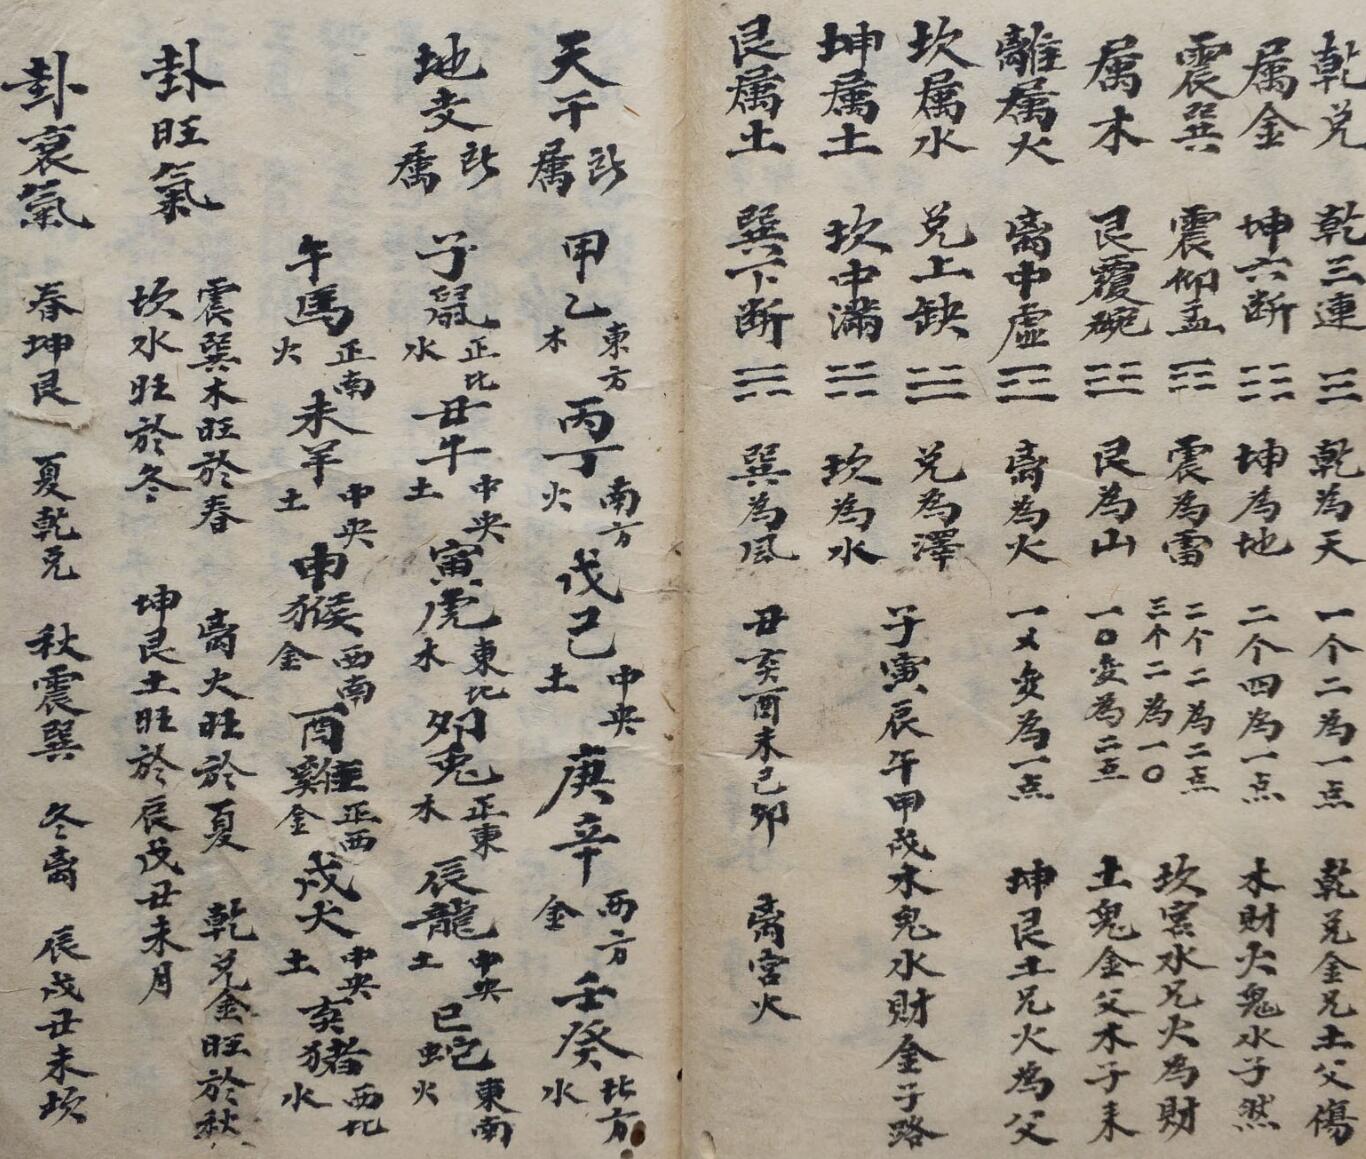 乾兑 乾三連 ☰ 乾為天 一个二為一点 乾兑金兄土父傷
属金 坤六断 ☷ 坤為地 二个四為一点 木財火鬼水子然
震巽 震仰盂 ☳ 震為雷 二个二為二点 三个二為一〇 坎宮水兄火為財
属木 艮覆碗 ☶ 艮為山 一〇变為二五 土鬼金父木子来
離属火 离中虚 ☲ 离為火 一乂变為一点 坤艮土兄火為父
坎属水 兑上缺 ☱ 兑為澤 子寅辰午申戌 木鬼水財金子路
坤属土 坎中满 ☵ 坎為水
艮属土 巽下断 ☴ 巽為风 丑亥酉未巳卯 离宫火
天干所属 甲乙東方木 丙丁南方火 戊己中央土 庚辛西方金 壬癸北方水
地支所属 子鼠正北水 丑牛中央土 寅虎東北木 卯兎正東木 辰龍中央土 巳蛇東南火
午馬正南火 未羊中央土 申猴西南金 酉雞正西金 戌犬中央土 亥猪西北水
卦旺氣 震巽木旺於春 离火旺於夏 乾兑金旺於秋
坎水旺於冬 坤艮土旺於辰戌丑未月
卦衰氣 春坤艮 夏乾兑 秋震巽 冬离 辰戌丑未坎